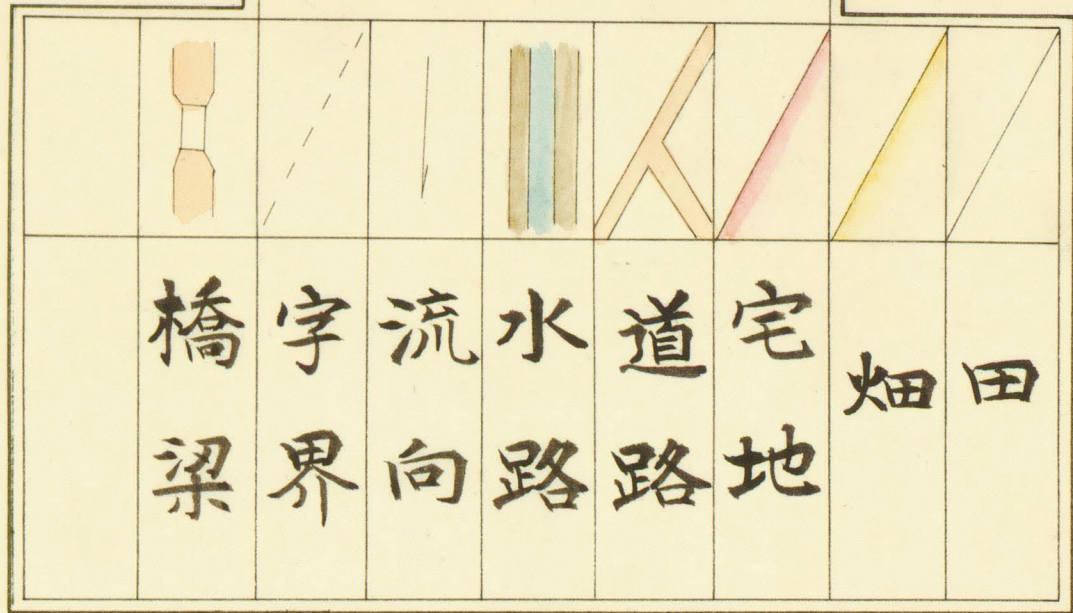 田
畑
宅地
道路
水路
流向
字界
橋梁